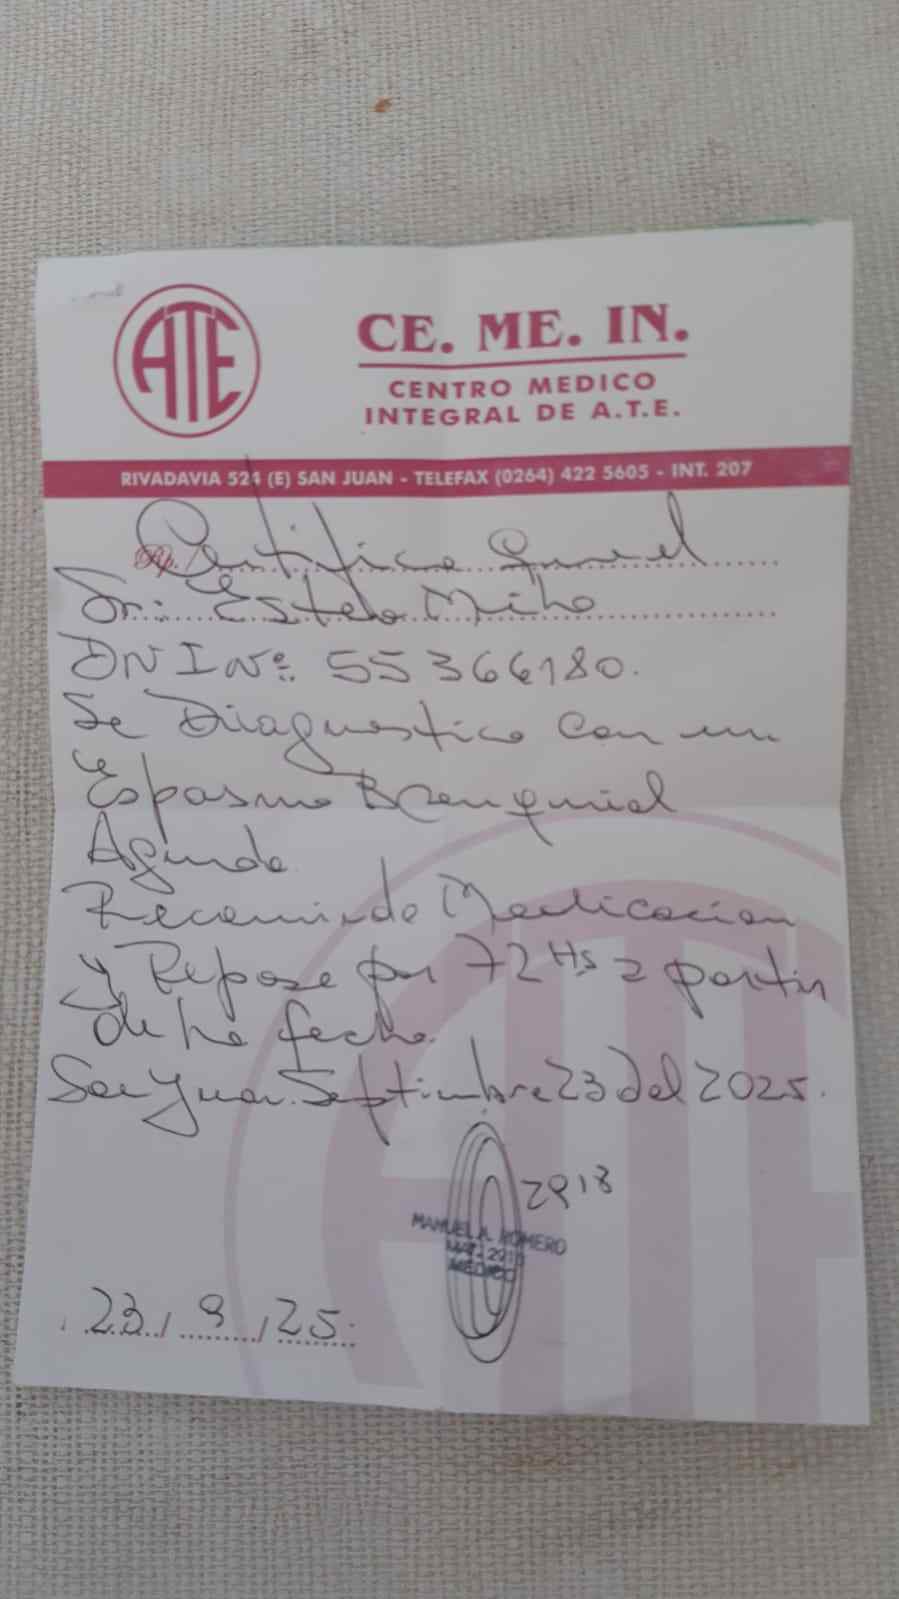 ATE
CE. ME. IN.
CENTRO MEDICO
INTEGRAL DE A.T.E.
RIVADAVIA 521 (E) SAN JUAN - TELEFAX (0264) 422 5605 - INT. 207
Rp./ Certifico que el
Sr.: Estelo Milo
DNI Nº: 55366180.
Se Diagnostico con un
Espasmo Bronquial
Agudo.
Recomiendo Medicacion
y Reposo por 72 Hs a partir
de la fecha.
San Juan. Septiembre 23 del 2025.
2918
MANUEL A. ROMERO
MAT. 2918
MEDICO
23 / 9 / 25.